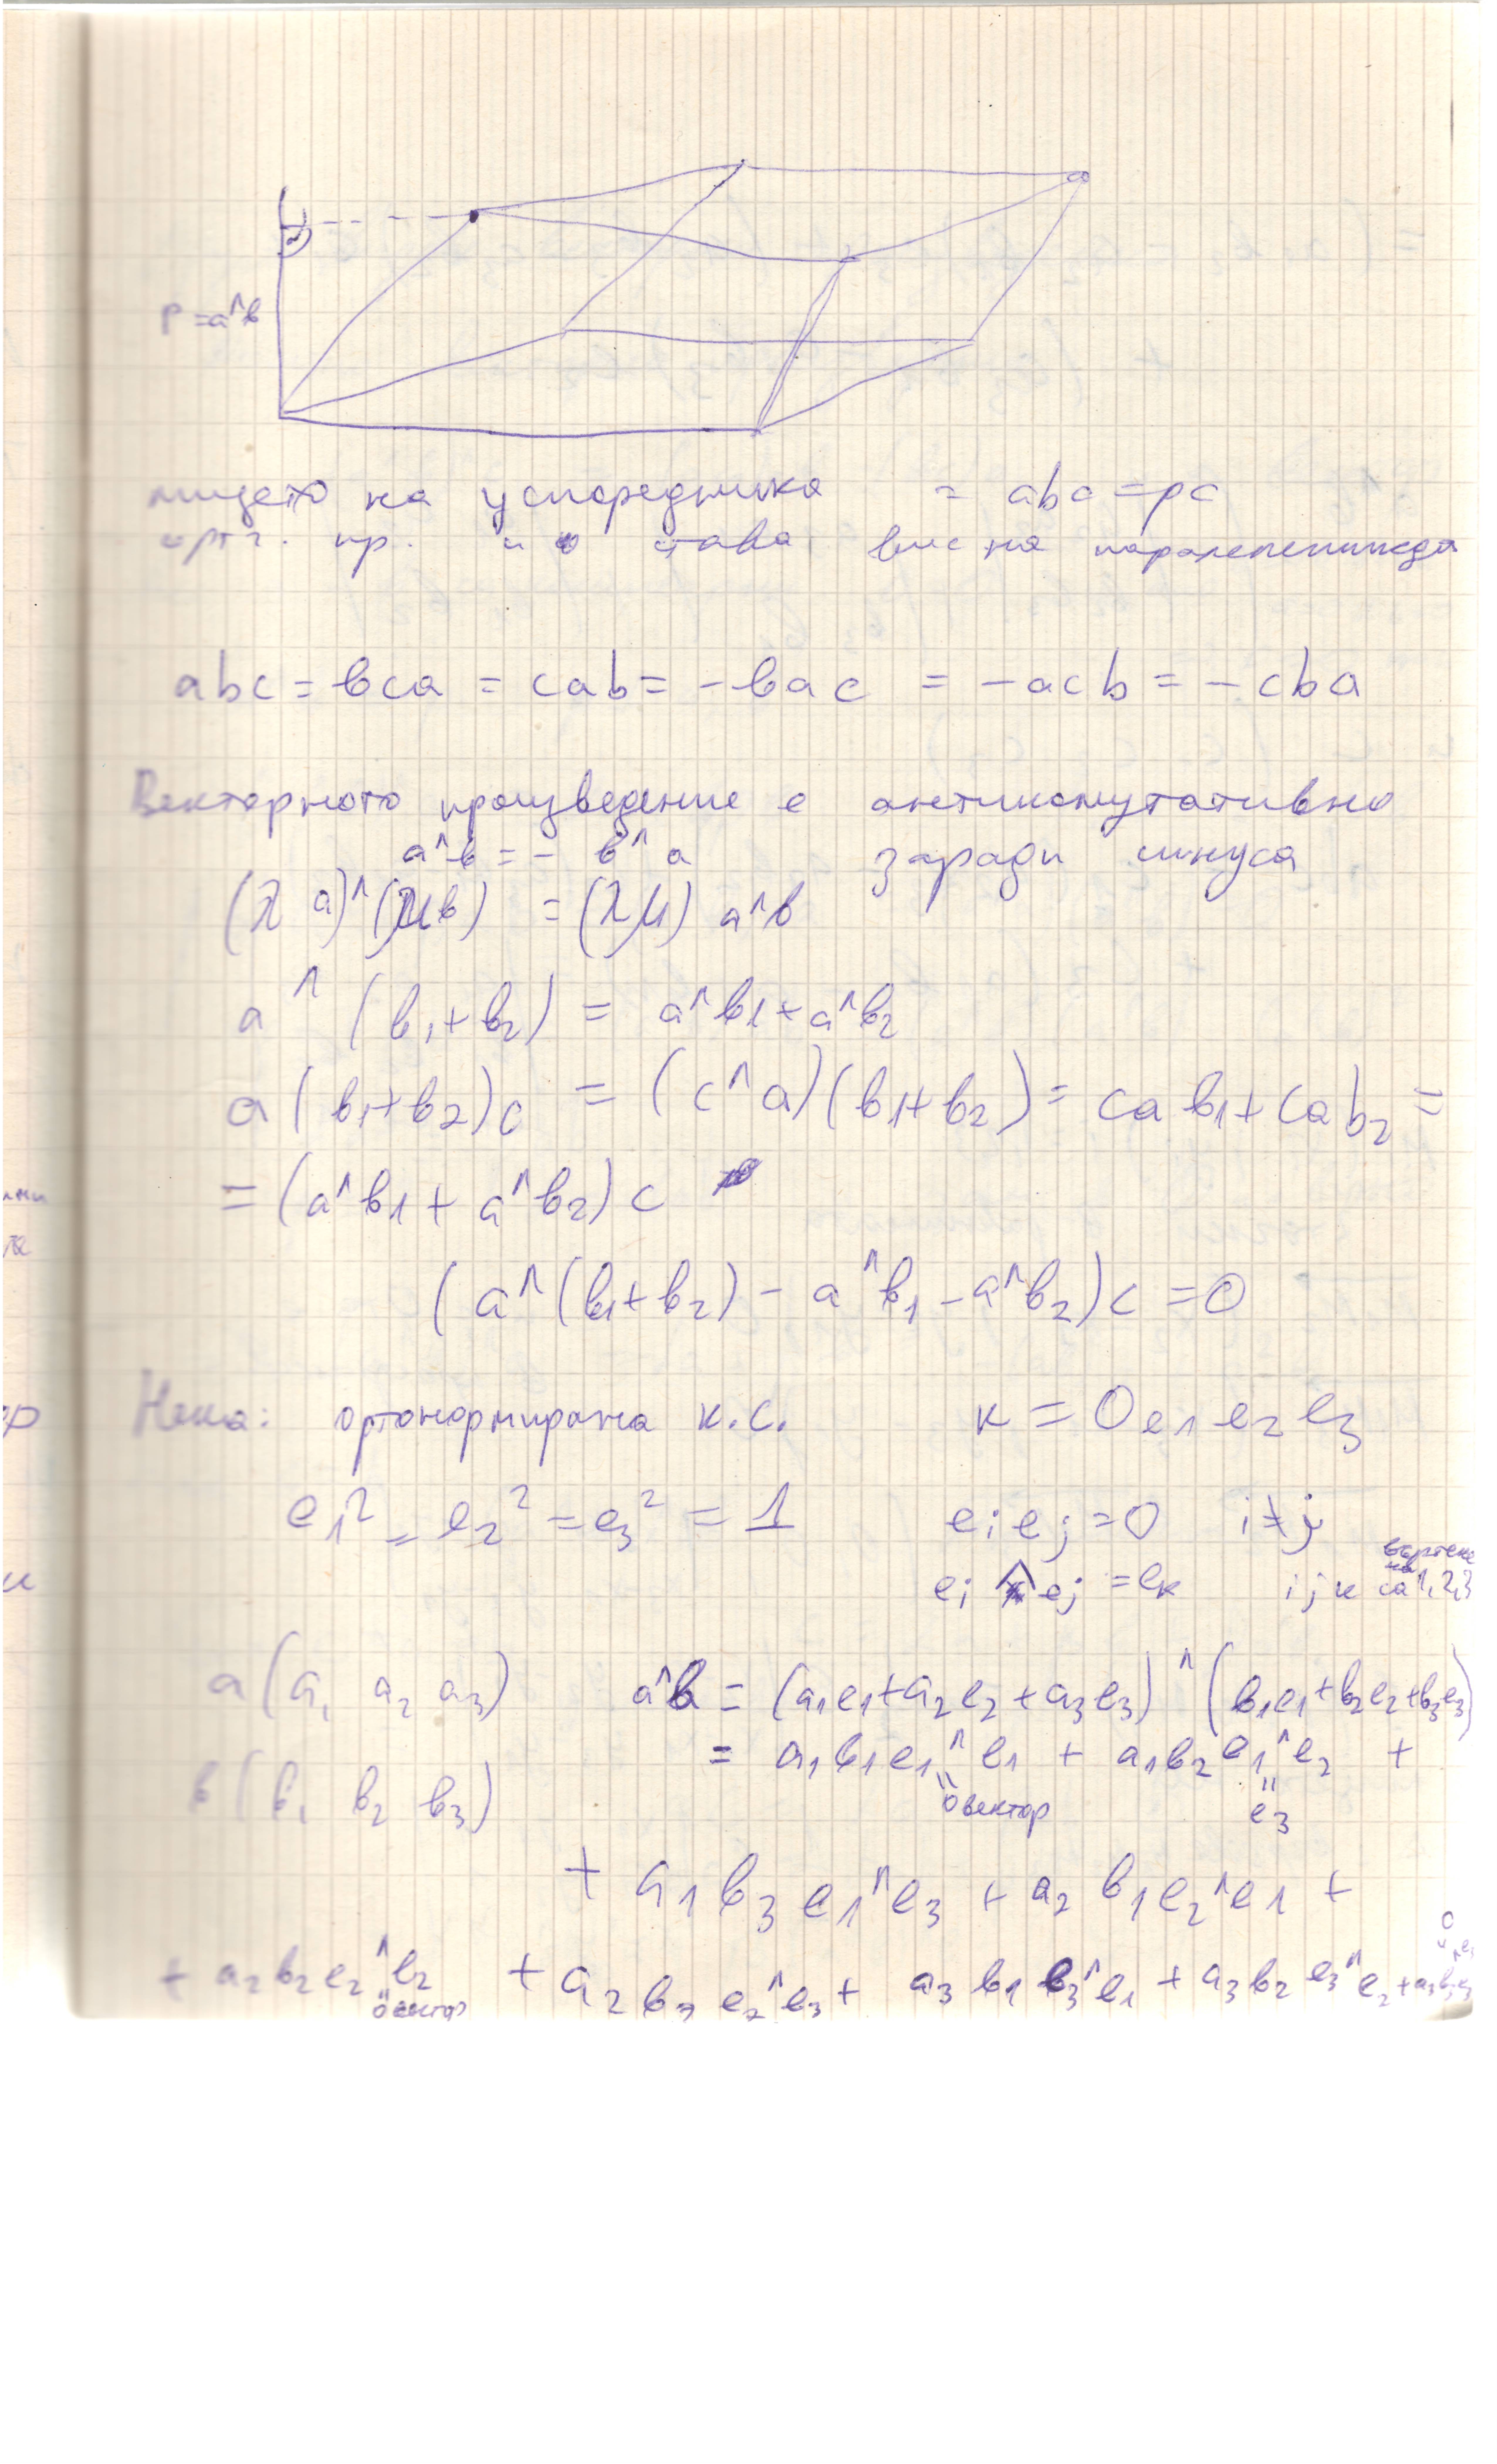 p = a^в
лицето на успоредника = abc = pc
орт. пр. и става вис на паралепепипеда
abc = вca = cab = -вac = -acb = -cba
Векторното произведение е антикомутативно
a^в = - в^a заради синуса
(λ a)^(μв) = (λμ) a^в
a ^ (в₁+в₂) = a^в1 + a^в₂
a (в₁+в₂)c = (c^a)(в1+в₂) = caв₁ + cab₂ =
= (a^в1 + a^в₂) c
(a^(в1+в₂) - a^в₁ - a^в₂)c = 0
Нека: ортонормирана к.с. к = Oe1 e2 e3
e₁² = e₂² = e₃² = 1 eᵢ eⱼ = 0 i≠j
eᵢ ^ eⱼ = eₖ i j к са 1,2,3
a(a₁ a₂ a₃) a^в = (a₁e₁+a₂e₂+a₃e₃)^(в₁e₁+в₂e₂+в₃e₃)
= a₁в₁e₁^e₁ + a₁в₂e₁^e₂ +
в(в₁ в₂ в₃) 0вектор e₃
+ a₁в₃e₁^e₃ + a₂в₁e₂^e₁ +
+ a₂в₂e₂^e₂ + a₂в₃e₂^e₃ + a₃в₁e₃^e₁ + a₃в₂e₃^e₂ + a₃в₃e₃^e₃
0вектор 0